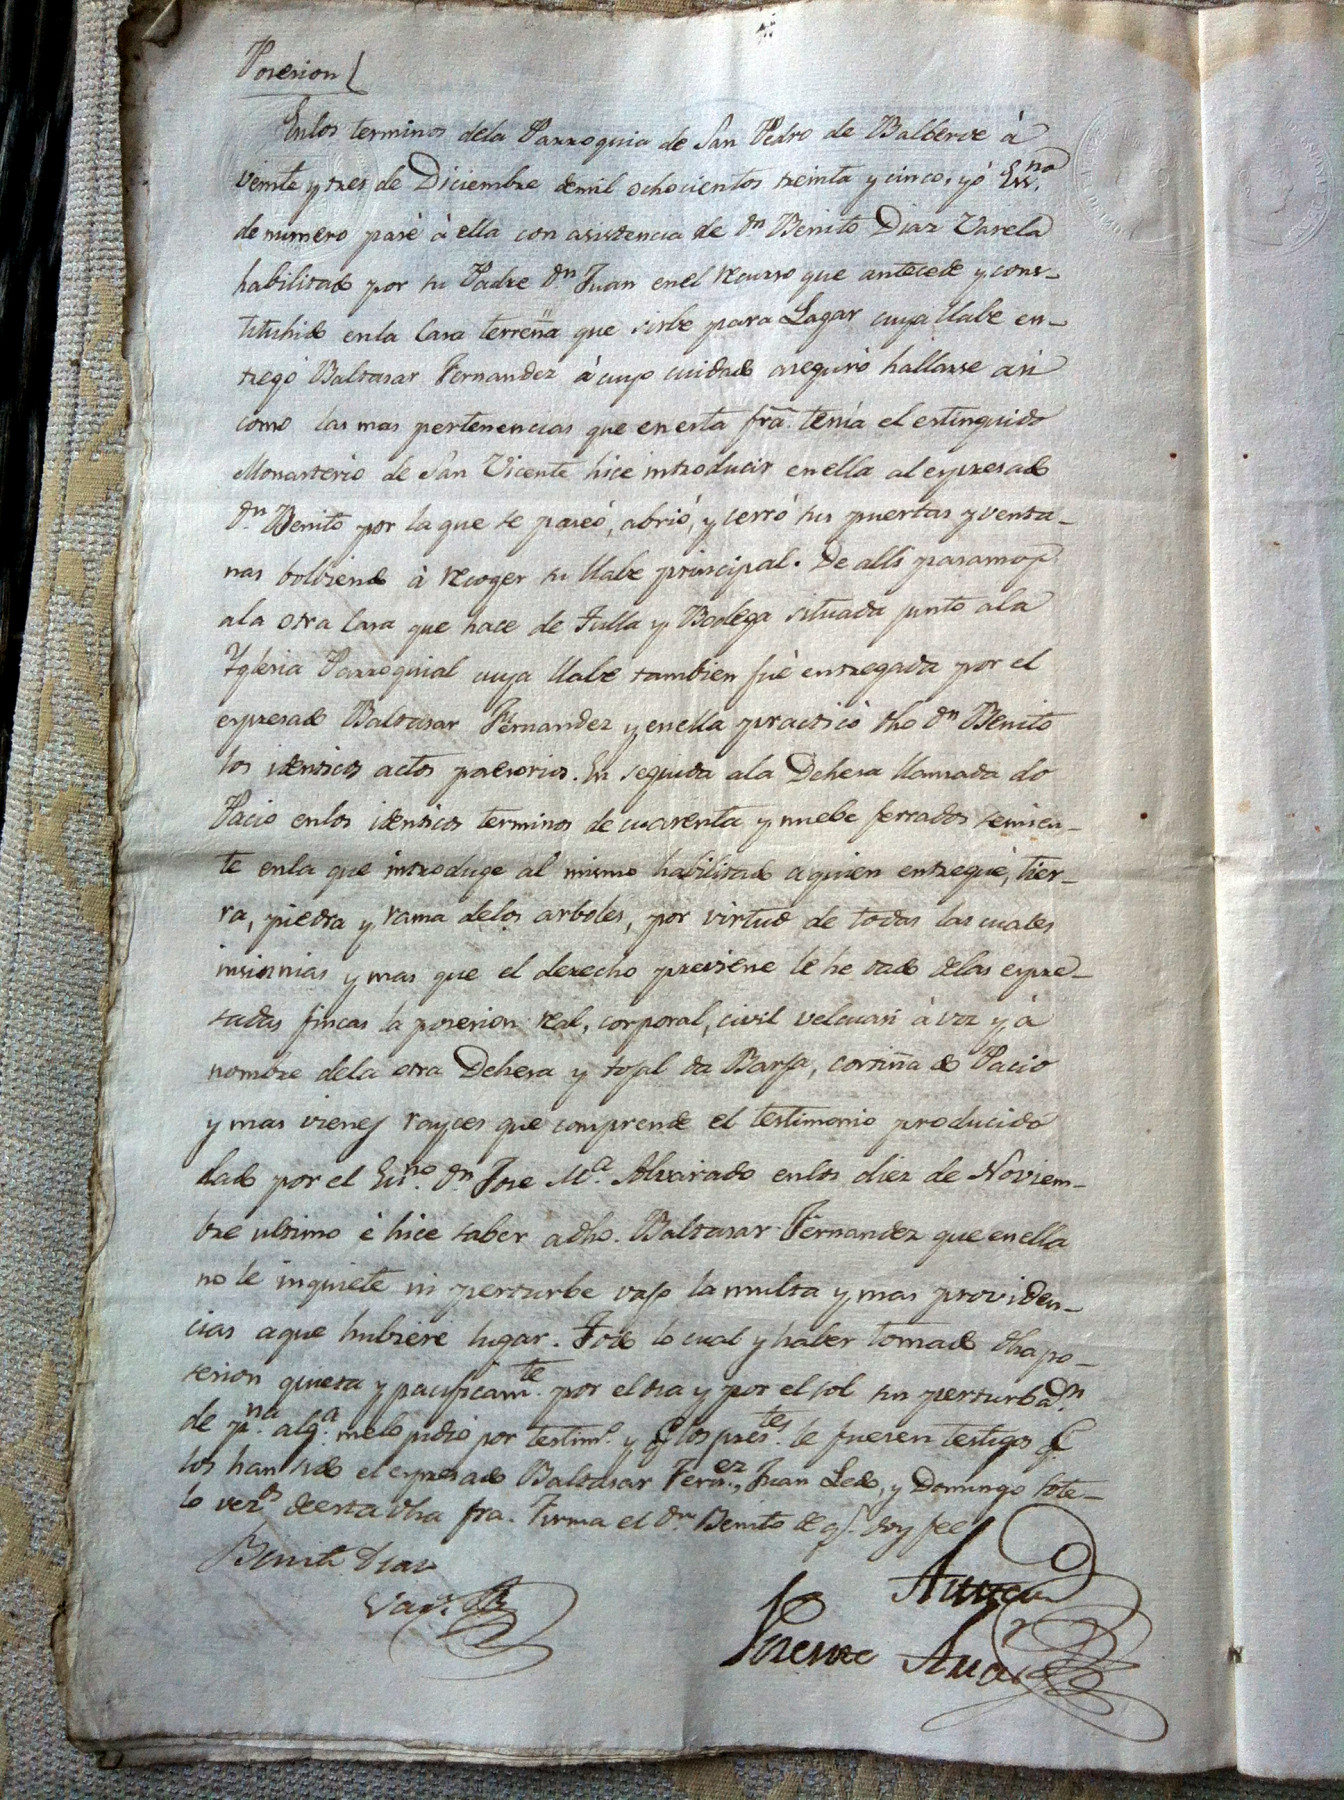 Posesion
En los terminos dela Parroquia de San Pedro de Balberde à
veinte y tres de Diciembre demil ochocientos treinta y cinco, yó Esn.no
de numero pasé à ella con asistencia de Dn Benito Diaz Varela
habilitado por su Padre Dn Juan enel recurso que antecede y cons-
tituhido enla Casa terreña que sirbe para Lagar cuya llabe en-
tregó Baltasar Fernandez á cuyo cuidado aseguró hallarse asi
como las mas pertenencias que en esta fra. tenia el estinguido
Monasterio de San Vicente hice introducir en ella al espresado
Dn Benito por la que se paseó, abrió, y cerró sus puertas y venta-
nas bolviendo à recoger su llabe principal. De alli pasamos
ala otra Casa que hace de Tulla y Bodega situada junto ala
Yglesia Parroquial cuya llabe tambien fué entregada por el
espresado Baltasar Fernandez y en ella practicó dho Dn Benito
los identicos actos posesorios. En seguida ala Dehesa llamada do
Pacio enlos identicos terminos de cuarenta y nuebe ferrados semien-
te enla que introduge al mismo habilitado aquien entregué, tier-
ra, piedra y rama delos arboles, por virtud de todas las cuales
insinnias y mas que el derecho previene le he dado delas espre-
sadas fincas la posesion real, corporal, civil velcuasi á voz y á
nombre dela otra Dehesa y tojal da Barja, cortiña do Pacio
y mas vienes rayces que comprende el testimonio producido
dado por el Esno. Dn Jose Ma. Alvarado enlos diez de Noviem-
bre ultimo é hice saber adho. Baltasar Fernandez que enella
no le inquiete ni perturbe vajo la multa y mas providen-
cias aque hubiere lugar. Todo lo cual y haber tomado dha po-
sesion quieta y pacificamte. por el dia y por el sol sin perturbaon.
de pna. alga. melo pidio por testimo. y q. los prestes. le fuesen testigos q.
los han sido el espresado Baltasar Fernez., Juan Ledo, y Domingo Sote-
lo vezs. deesta dha fra. Firma el Dn Benito de q. doy fee
Benito Diaz
Vara.
Antemi
Vicente